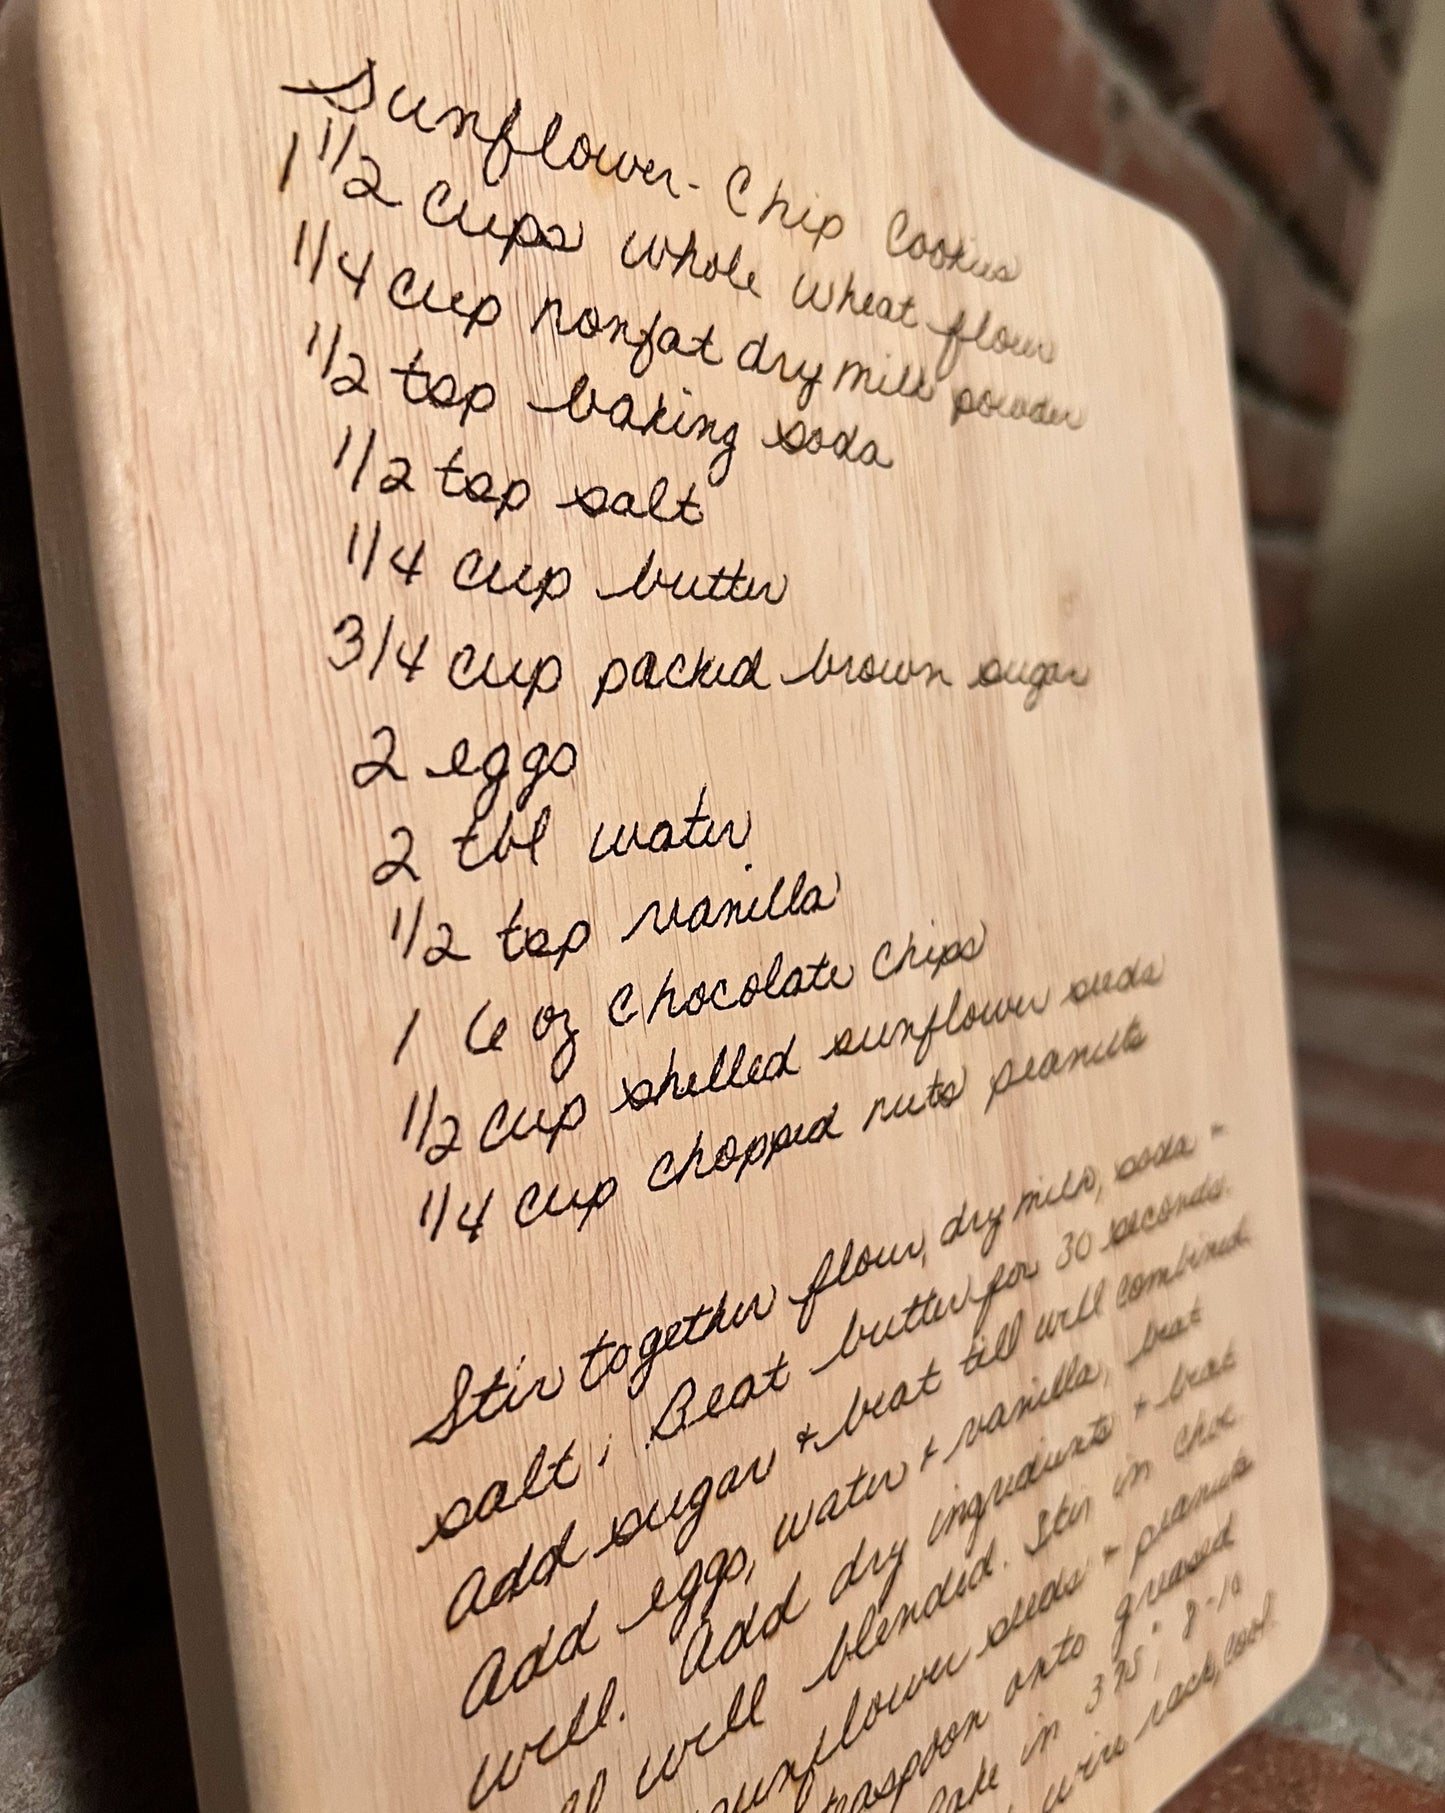 Sunflower-Chip Cookies
1 1/2 cups whole wheat flour
1/4 cup nonfat dry milk powder
1/2 tsp baking soda
1/2 tsp salt
1/4 cup butter
3/4 cup packed brown sugar
2 eggs
2 tbl water
1/2 tsp vanilla
1 6 oz chocolate chips
1/2 cup shelled sunflower seeds
1/4 cup chopped nuts peanuts
Stir together flour, dry milk, soda +
salt; Beat butter for 30 seconds.
Add sugar + beat till well combined.
Add eggs, water + vanilla, beat
well. Add dry ingredients + beat
well blended. Stir in choc.
sunflower seeds + peanuts
teaspoon onto greased
bake in 375°; 8-10
wire rack, cool.